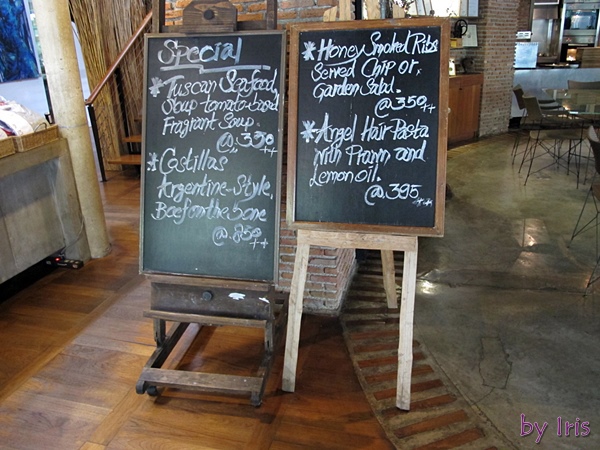 Special
* Tuscan Seafood
Soup tomato based
Fragrant Soup.
@.330 ++
* Costillas
Argentine-Style,
Beef on the bone
@.850 ++
* Honey Smoked Ribs
Served Chip or,
Garden Salad.
@.350 ++
* Angel Hair Pasta
with Prawn and
Lemon oil.
@.395 ++
by Iris